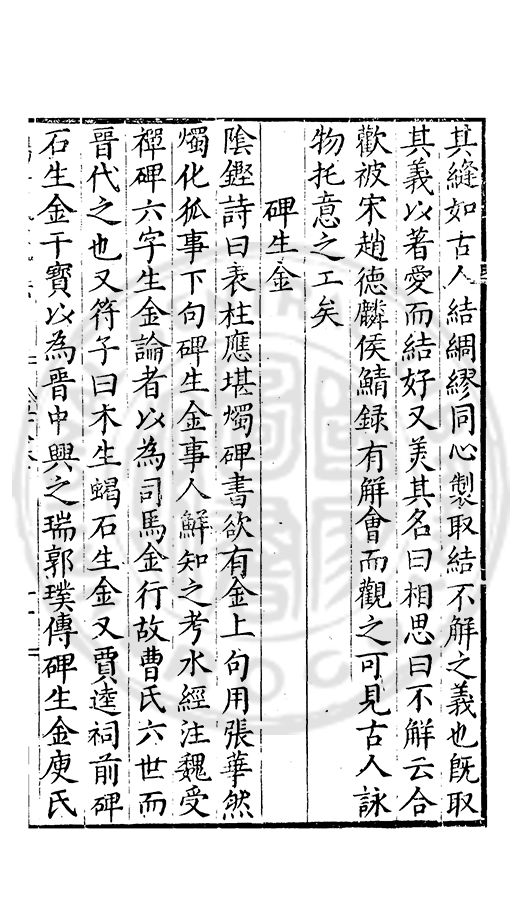 其縫如古人結綢繆同心製取結不解之義也既取
其義以著愛而結好又美其名曰相思曰不解云合
歡被宋趙德麟侯鯖録有解會而觀之可見古人詠
物托意之工矣
碑生金
陰鏗詩曰表柱應堪燭碑書欲有金上句用張華然
燭化狐事下句碑生金事人鮮知之考水經注魏受
禪碑六字生金論者以為司馬金行故曹氏六世而
晉代之也又符子曰木生蝎石生金又賈逵祠前碑
石生金干寶以為晉中興之瑞郭璞傳碑生金庾氏